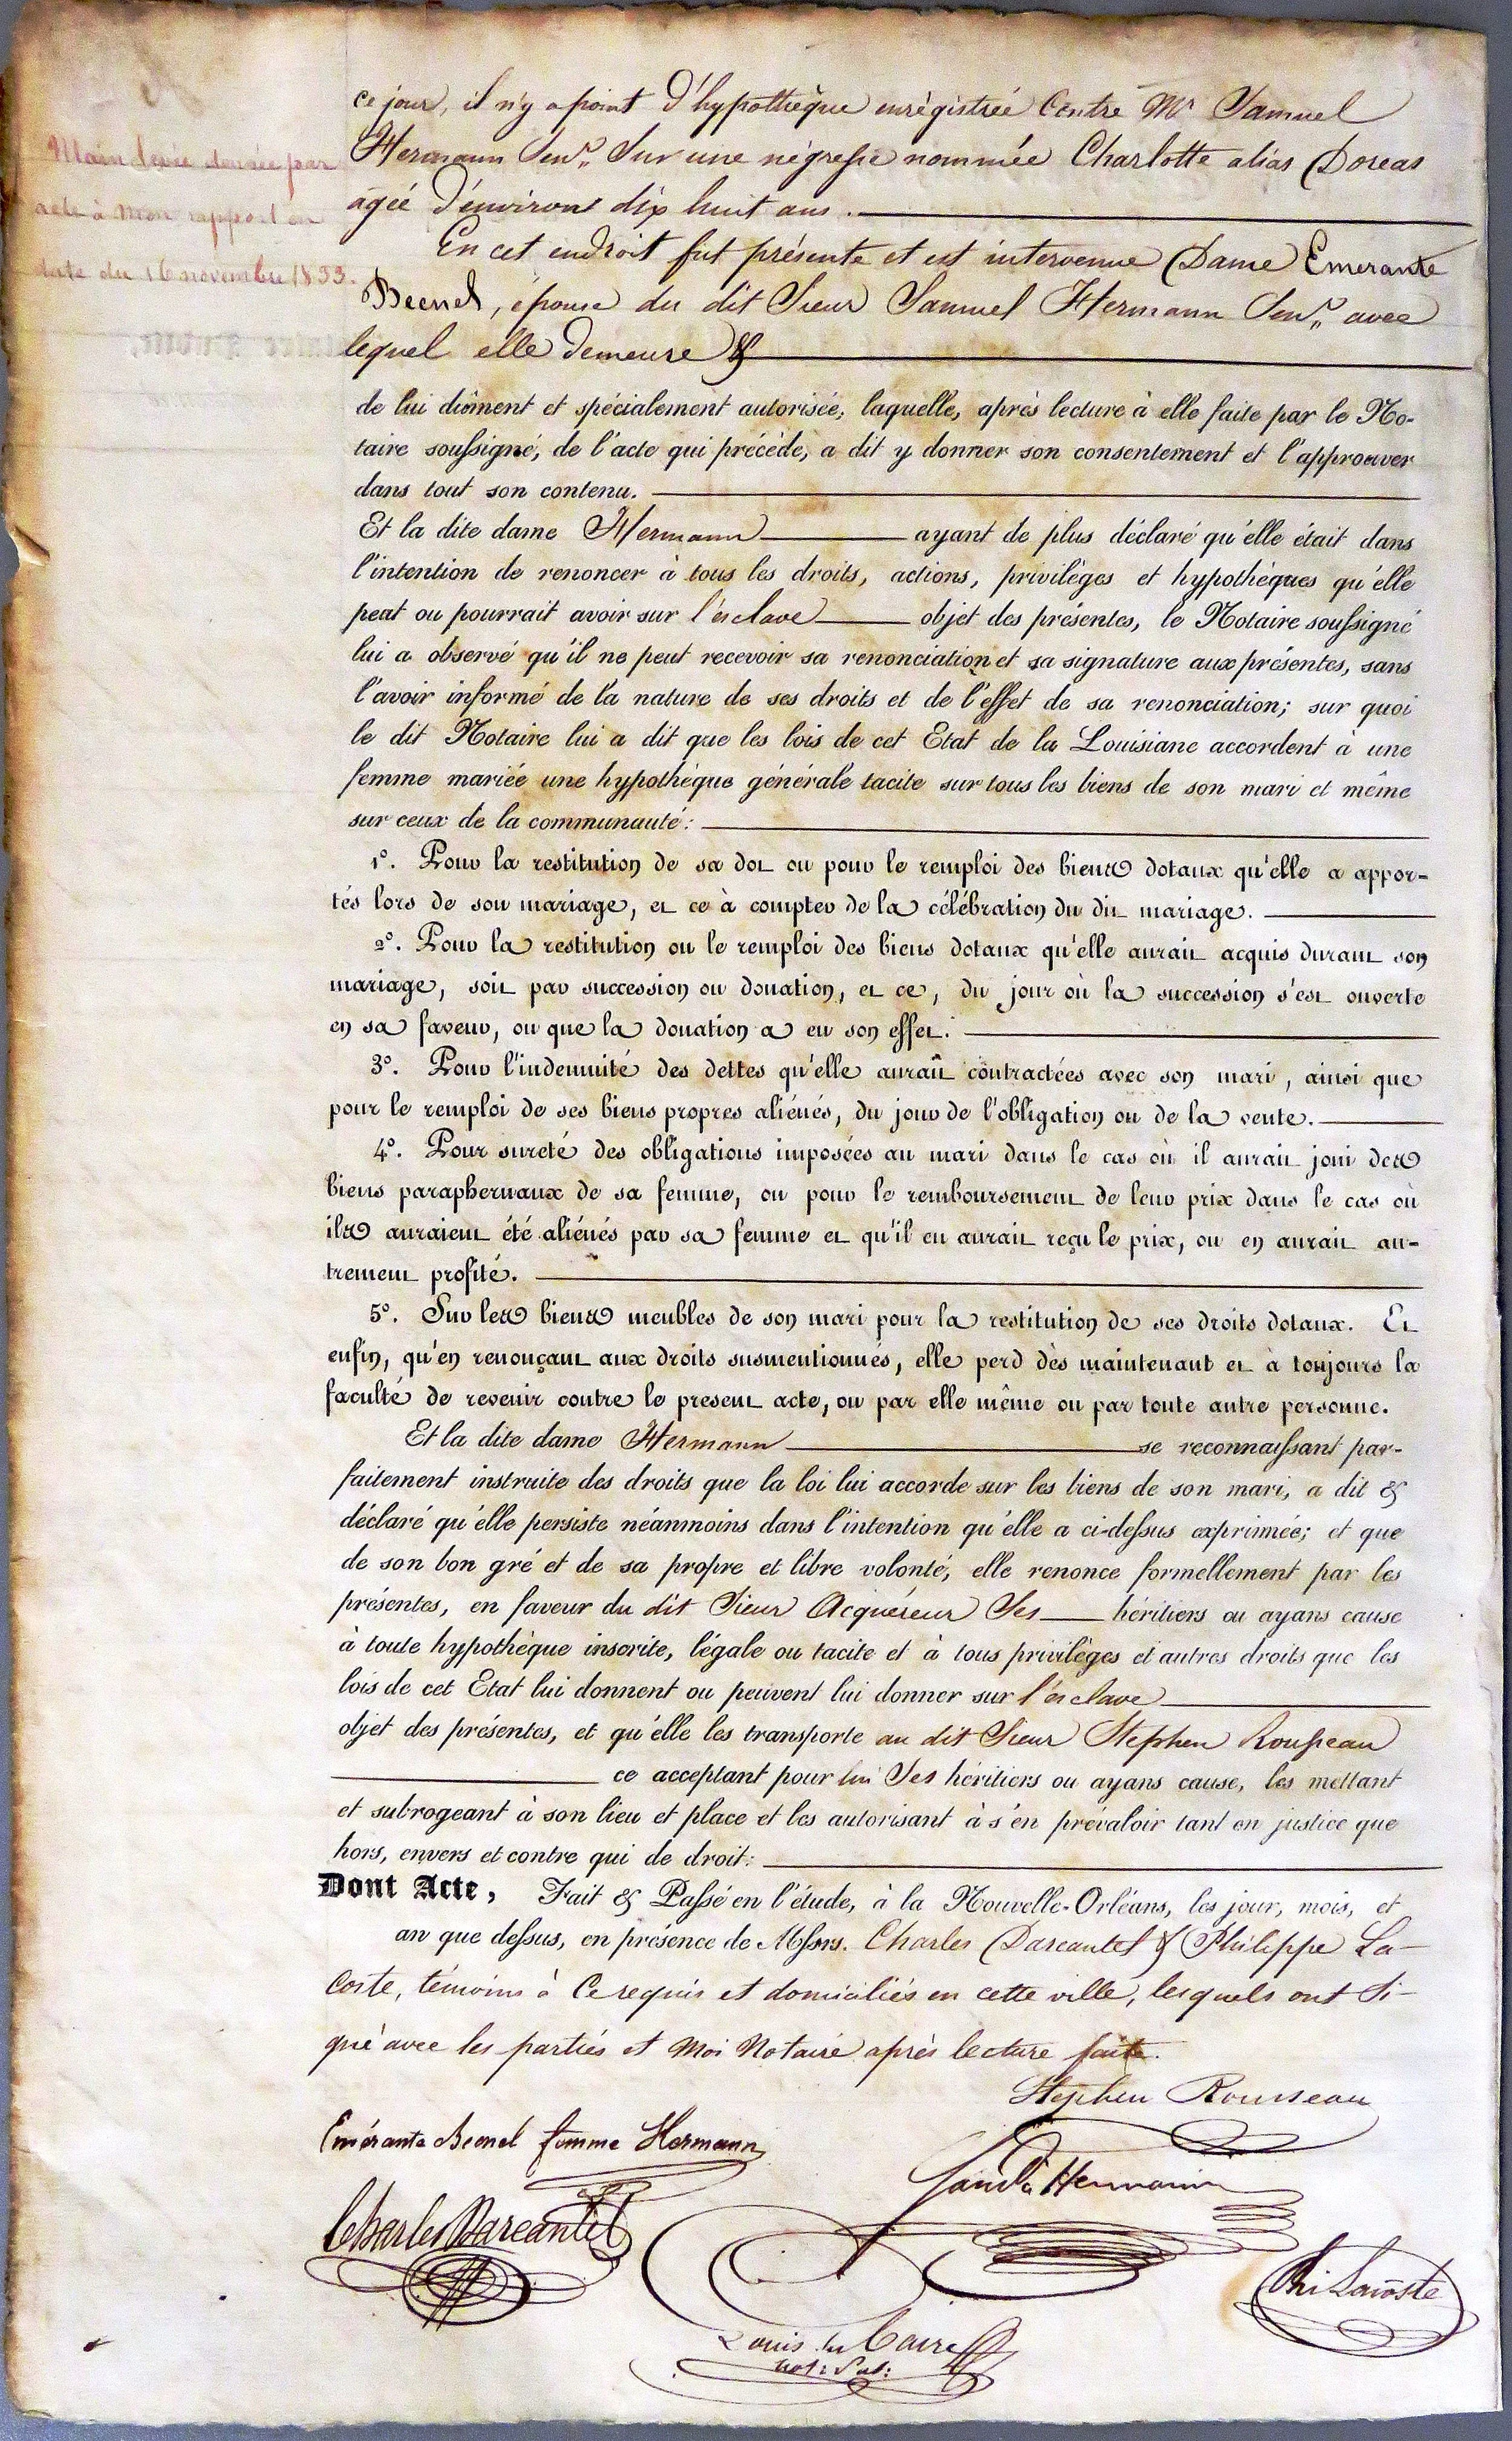 Main levée donnée par
acte à mon rapport en
date du 16 novembre 1833.
ce jour, il n'y a point d'hypothèque enrégistrée Contre Mr Samuel
Hermann Senr. Sur une négresse nommée Charlotte alias Dorcas
agée d'environ dix huit ans.
En cet endroit fut présente et est intervenue Dame Emerante
Becnel, épouse du dit Sieur Samuel Hermann Senr. avec
lequel elle demeure &
de lui dûment et spécialement autorisée, laquelle, après lecture à elle faite par le No-
taire soussigné, de l'acte qui précède, a dit y donner son consentement et l'approuver
dans tout son contenu.
Et la dite dame Hermann ayant de plus déclaré qu'elle était dans
l'intention de renoncer à tous les droits, actions, privilèges et hypothèques qu'elle
peut ou pourrait avoir sur l'esclave objet des présentes, le Notaire soussigné
lui a observé qu'il ne peut recevoir sa renonciation et sa signature aux présentes, sans
l'avoir informé de la nature de ses droits et de l'effet de sa renonciation; sur quoi
le dit Notaire lui a dit que les lois de cet Etat de la Louisiane accordent à une
femme mariée une hypothèque générale tacite sur tous les biens de son mari et même
sur ceux de la communauté:
1º. Pour la restitution de sa dot ou pour le remploi des biens dotaux qu'elle a appor-
tés lors de son mariage, et ce à compter de la célébration du dit mariage.
2º. Pour la restitution ou le remploi des biens dotaux qu'elle aurait acquis durant son
mariage, soit par succession ou donation, et ce, du jour où la succession s'est ouverte
en sa faveur, ou que la donation a eu son effet.
3º. Pour l'indemnité des dettes qu'elle aurait contractées avec son mari, ainsi que
pour le remploi de ses biens propres aliénés, du jour de l'obligation ou de la vente.
4º. Pour sureté des obligations imposées au mari dans le cas où il aurait joui des
biens paraphernaux de sa femme, ou pour le remboursement de leur prix dans le cas où
ils auraient été aliénés par sa femme et qu'il en aurait reçu le prix, ou en aurait au-
trement profité.
5º. Sur les biens meubles de son mari pour la restitution de ses droits dotaux. Et
enfin, qu'en renonçant aux droits susmentionnés, elle perd dès maintenant et à toujours la
faculté de revenir contre le present acte, ou par elle même ou par toute autre personne.
Et la dite dame Hermann se reconnaissant par-
faitement instruite des droits que la loi lui accorde sur les biens de son mari, a dit &
déclaré qu'elle persiste néanmoins dans l'intention qu'elle a ci-dessus exprimée; et que
de son bon gré et de sa propre et libre volonté, elle renonce formellement par les
présentes, en faveur du dit Sieur Acquéreur Ses héritiers ou ayans cause
à toute hypothèque inscrite, légale ou tacite et à tous privilèges et autres droits que les
lois de cet Etat lui donnent ou peuvent lui donner sur l'esclave
objet des présentes, et qu'elle les transporte au dit Sieur Stephen Rousseau
ce acceptant pour lui Ses héritiers ou ayans cause, les mettant
et subrogeant à son lieu et place et les autorisant à s'en prévaloir tant en justice que
hors, envers et contre qui de droit:
Dont Acte, Fait & Passé en l'étude, à la Nouvelle-Orléans, les jour, mois, et
an que dessus, en présence de Messrs. Charles Darcantel & Philippe La-
coste, témoins à Ce requis et domiciliés en cette ville, lesquels ont Si-
gné avec les parties et Moi Notaire après lecture faite.
Stephen Rousseau
Emérante Becnel femme Hermann
Saml Hermann
Charles Darcantel
Phi Lacoste
Louis
Caire
not: Pub: